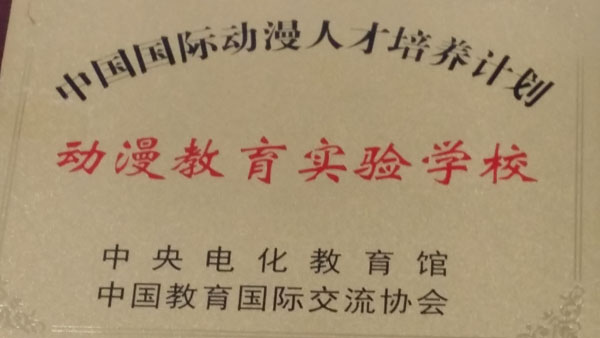 中国国际动漫人才培养计划
动漫教育实验学校
中央电化教育馆
中国教育国际交流协会